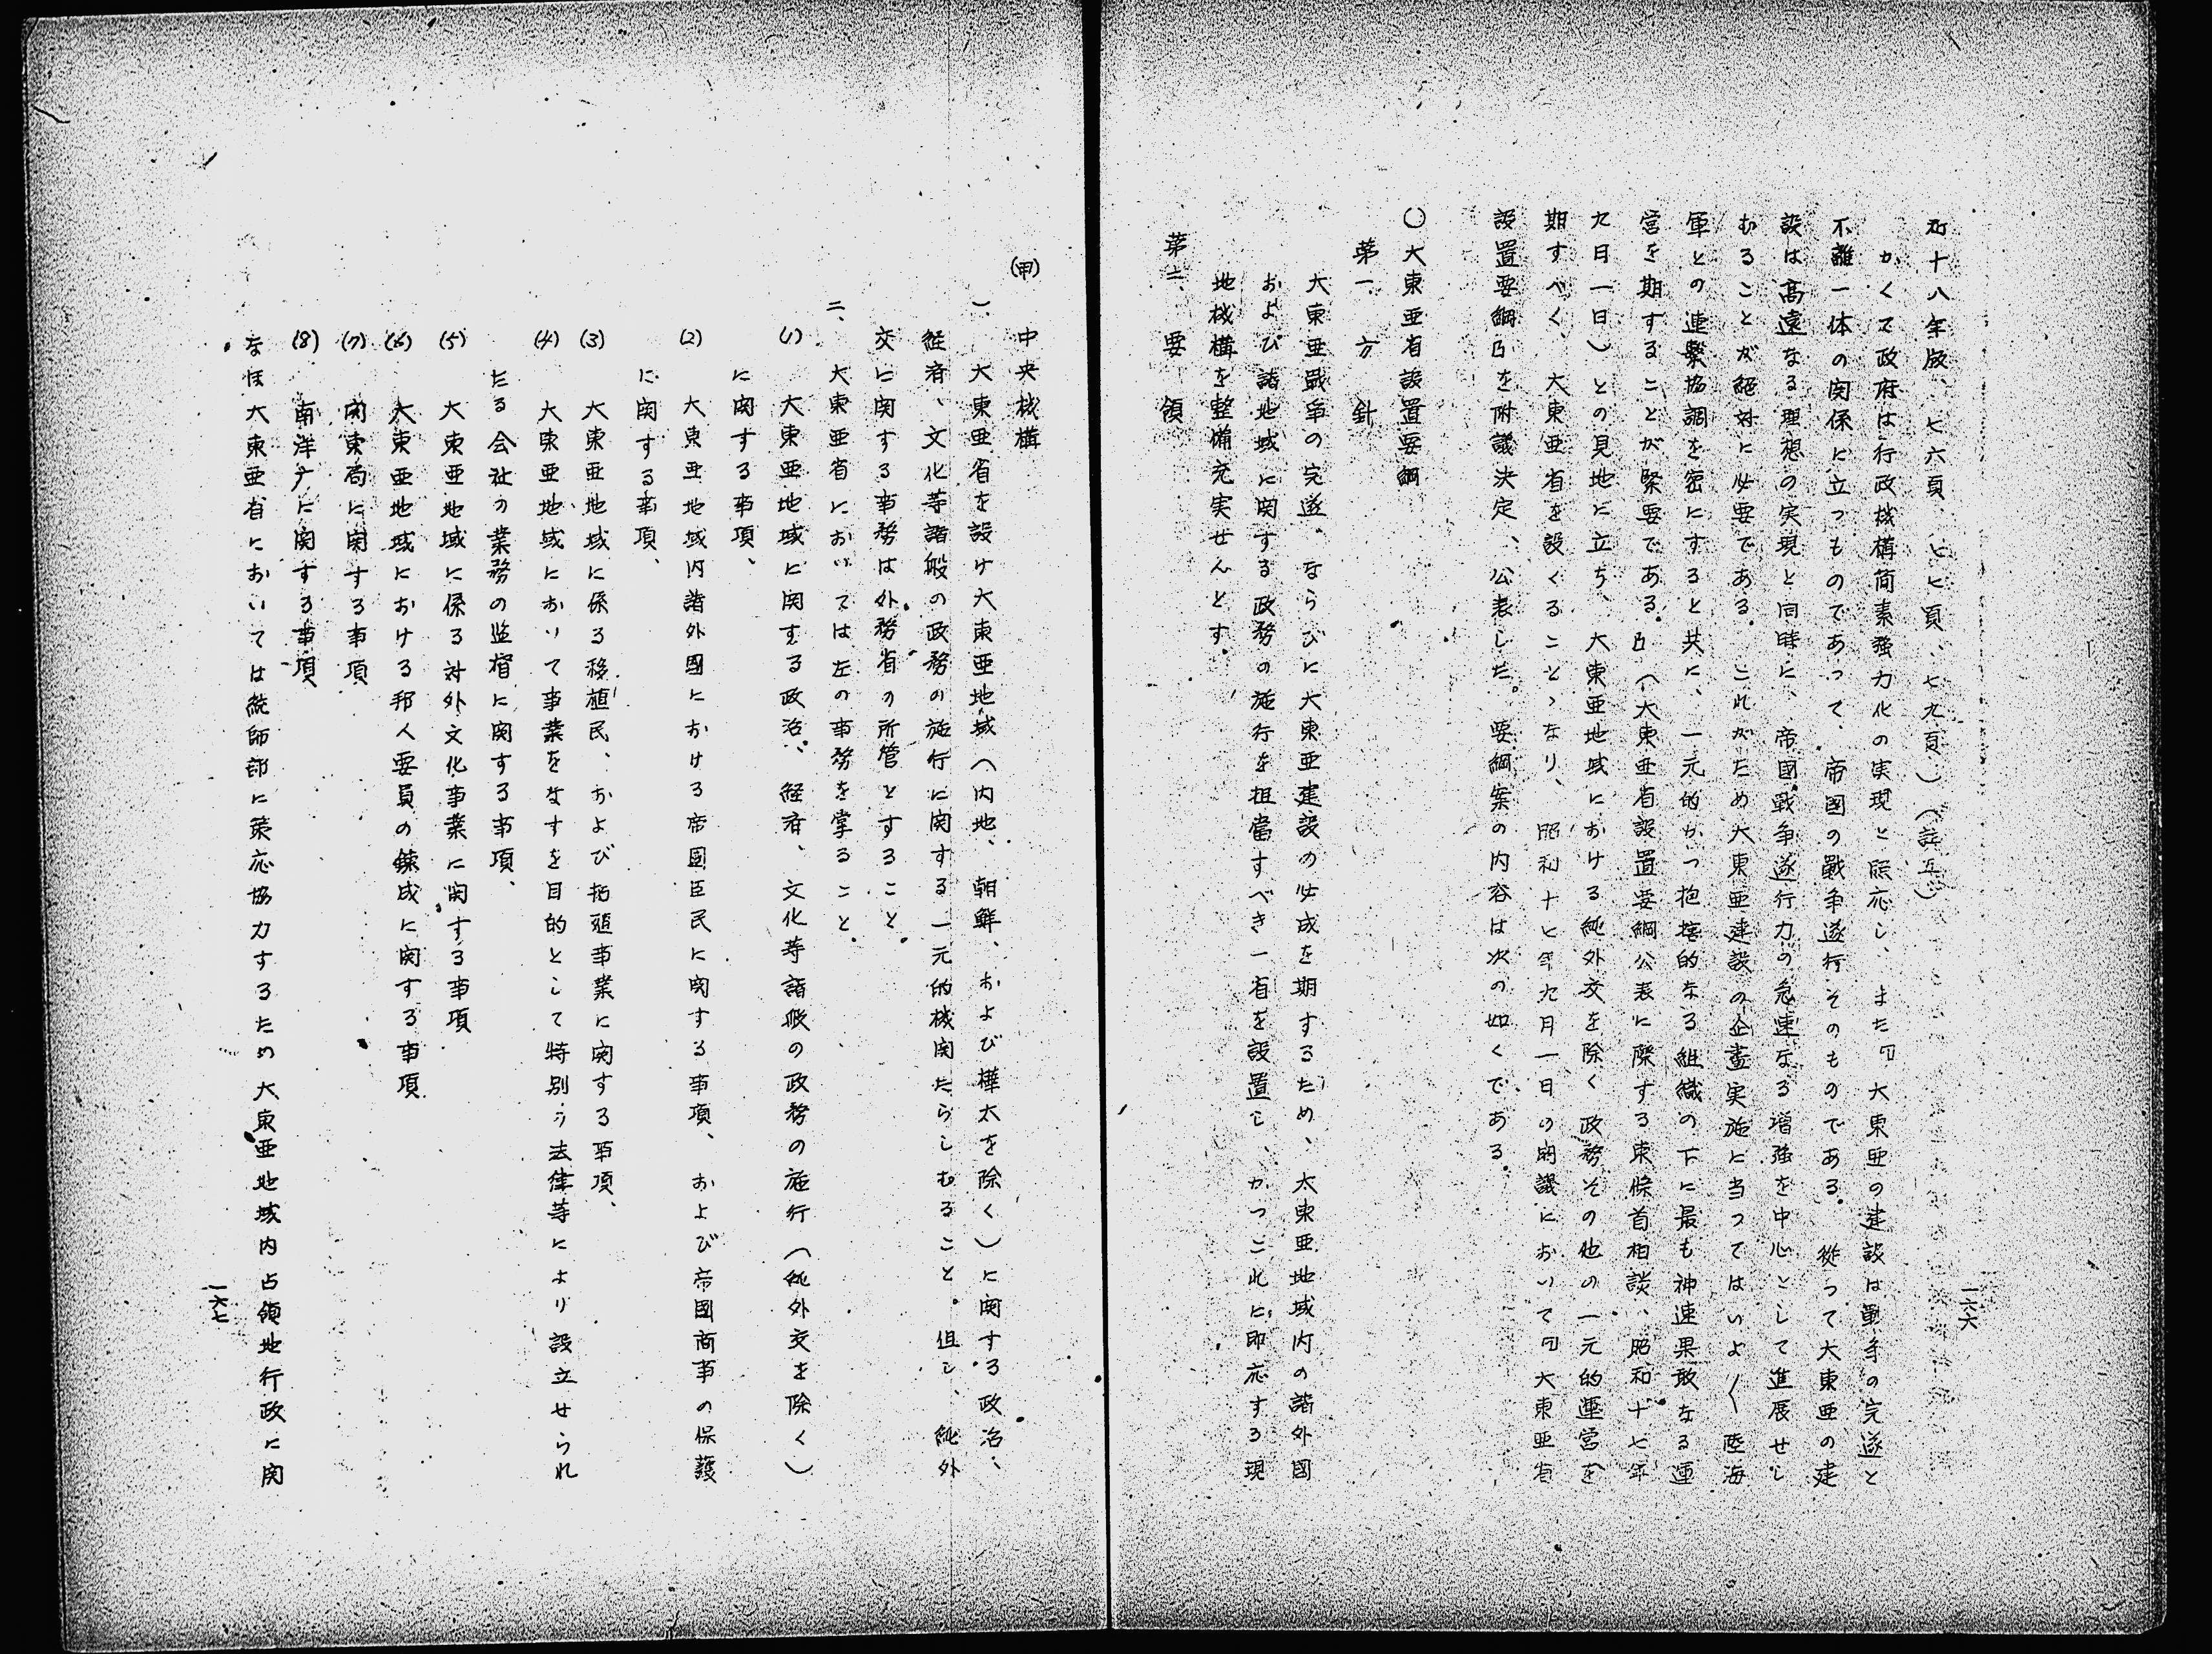 一六六
和十八年版、七六頁、七七頁、七九頁、）（註五）
かくて政府は行政機構簡素強力化の実現と照応し、また『大東亜の建設は戰争の完遂と
不離一体の関係に立つものであって、帝國の戰争遂行そのものである。從って大東亜の建
設は高遠なる理想の実現と同時に、帝國戰争遂行力の急速なる増強を中心として進展せし
むることが絶対に必要である。これがため大東亜建設の企畫実施に当ってはいよ〱陸海
軍との連繋協調を密にすると共に、一元的かつ抱括的なる組織の下に最も神速果敢なる運
営を期することが緊要である。』（大東亜省設置要綱公表に際する東條首相談、昭和十七年
九日一日）との見地に立ち、大東亜地域における純外交を除く政務その他の一元的運営を
期すべく、大東亜省を設くることゝなり、昭和十七年九月一日の閣議において『大東亜省
設置要綱』を附議決定、公表した。要綱案の内容は次の如くである。
〇大東亜省設置要綱
第一、方針
大東亜戰争の完遂、ならびに大東亜建設の必成を期するため、大東亜地域内の諸外國
および諸地域に関する政務の施行を担當すべき一省を設置し、かつこれに即応する現
地機構を整備充実せんとす。
第二、要領
(甲)中央機構
一、大東亜省を設け大東亜地域（内地、朝鮮、および樺太を除く）に関する政治、
経済、文化等諸般の政務の施行に関する一元的機関たらしむること。但し、純外
交に関する事務は外務省の所管とすること。
二、大東亜省においては左の事務を掌ること。
(1)大東亜地域に関する政治、経済、文化等諸般の政務の施行（純外交を除く）
に関する事項、
(2)大東亜地域内諸外國における帝國臣民に関する事項、および帝國商事の保護
に関する事項、
(3)大東亜地域に係る移植民、および拓殖事業に関する事項、
(4)大東亜地域において事業をなすを目的として特別の法律等により設立せられ
たる会社の業務の監督に関する事項、
(5)大東亜地域に係る対外文化事業に関する事項
(6)大東亜地域における邦人要員の錬成に関する事項
(7)関東局に関する事項
(8)南洋庁に関する事項
なほ大東亜省においては統師部に策応協力するため大東亜地域内占領地行政に関
一六七